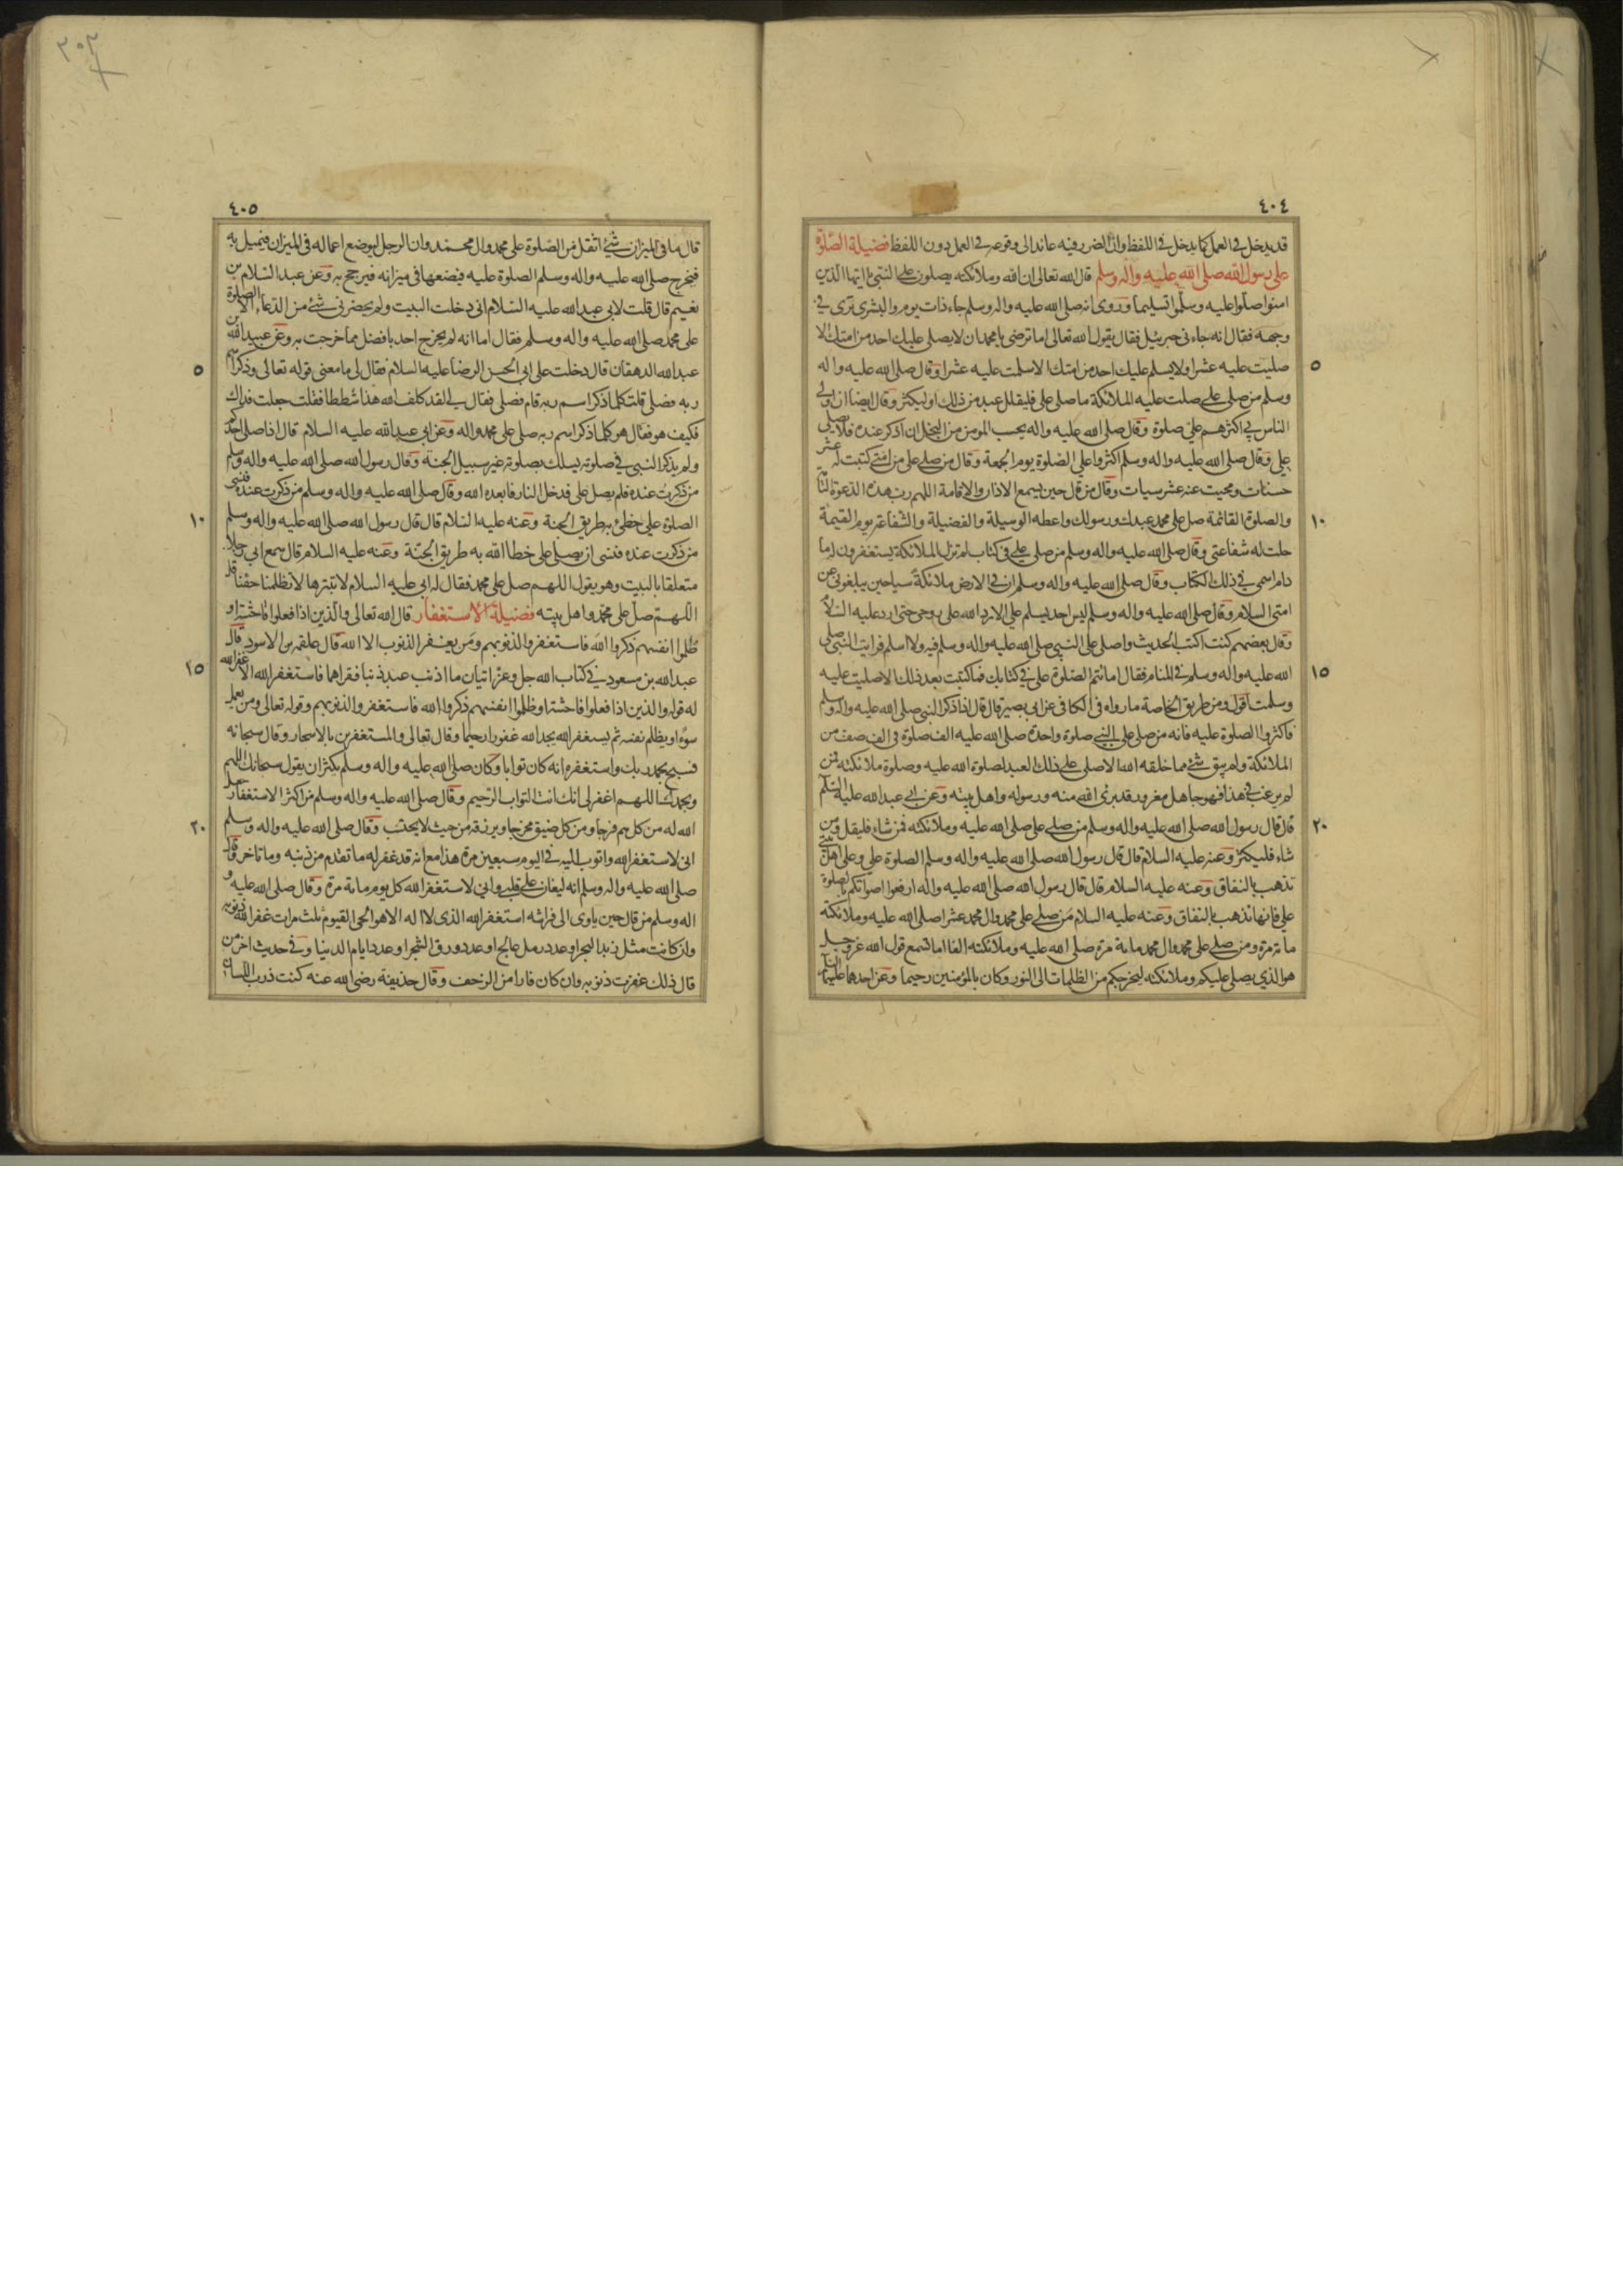 ٤٠٤
قد يدخل في العمل كما يدخل في اللفظ وان الضرر فيه عائد الى وقوعه في العمل دون اللفظ فضيلة الصّلوة
على رسول الله صلى الله عليه واله وسلم قال الله تعالى ان الله وملائكته يصلون على النبي يا ايها الذين
امنوا صلوا عليه وسلموا تسليما وروى انه صلى الله عليه واله وسلم جاء ذات يوم والبشرى ترى في
وجهه فقال انه جاءنى جبرئيل فقال يقول الله تعالى اما ترضى يا محمد ان لا يصلى عليك احد من امتك الا
٥
صليت عليه عشرا ولا يسلم عليك احد من امتك الا سلمت عليه عشرا وقال صلى الله عليه واله
وسلم من صلى على صلت عليه الملائكة ما صلى على فليقلل عبد من ذلك او ليكثر وقال ايضا ان اولى
الناس بي اكثرهم علي صلوة وقال صلى الله عليه واله بحسب المومن من البخل ان اذكر عنده فلا يصلى
على وقال صلى الله عليه واله وسلم اكثروا على الصلوة يوم الجمعة وقال من صلى على من امتى كتبت له عشر
حسنات ومحيت عنه عشر سيات وقال من قال حين يسمع الاذان والاقامة اللهم رب هذه الدعوة التامة
١٠
والصلوة القائمة صل على محمد عبدك ورسولك واعطه الوسيلة والفضيلة والشفاعة يوم القيمة
حلت له شفاعتى وقال صلى الله عليه واله وسلم من صلى على في كتاب لم تزل الملائكة يستغفرون له ما
دام اسمى في ذلك الكتاب وقال صلى الله عليه واله وسلم ان في الارض ملائكة سياحين يبلغونى عن
امتى السلام وقال صلى الله عليه واله وسلم ليس احد يسلم على الا رد الله على روحى حتى ارد عليه السلام
وقال بعضهم كنت اكتب الحديث واصلى على النبى صلى الله عليه واله وسلم فيه ولا اسلم فرايت النبى صلى
١٥
الله عليه واله وسلم في المنام فقال اما تتم الصلوة على في كتابك فما كتبت بعد ذلك الا صليت عليه
وسلمت اقول ومن طريق الخاصة ما رواه في الكافى عن ابى بصير قال قال اذا ذكر النبى صلى الله عليه واله وسلم
فاكثروا الصلوة عليه فانه من صلى على النبى صلوة واحدة صلى الله عليه الف صلوة في الف صف من
الملائكة ولم يبق شئ مما خلقه الله الا صلى على ذلك العبد لصلوة الله عليه وصلوة ملائكته فمن
لم يرغب في هذا فهو جاهل مغرور قد برئ الله منه ورسوله واهل بيته وعن ابى عبد الله عليه السلم
٢٠
قال قال رسول الله صلى الله عليه واله وسلم من صلى على صلى الله عليه وملائكته فمن شاء فليقل ومن
شاء فليكثر وعنه عليه السلام قال قال رسول الله صلى الله عليه واله وسلم الصلوة على وعلى اهل بيتى
تذهب بالنفاق وعنه عليه السلام قال قال رسول الله صلى الله عليه واله ارفعوا اصواتكم بالصلوة
على فانها تذهب بالنفاق وعنه عليه السلام من صلى على محمد وال محمد عشرا صلى الله عليه وملائكته
مائة مرة ومن صلى على محمد وال محمد مائة مرة صلى الله عليه وملائكته الفا اما تسمع قول الله عز وجل
هو الذي يصلى عليكم وملائكته ليخرجكم من الظلمات الى النور وكان بالمؤمنين رحيما وعن احدهما عليهما السلم
٤٠٥
قال ما في الميزان شئ اثقل من الصّلوة على محمد وال محمد وان الرجل ليوضع اعماله في الميزان فيميل به
فيخرج صلى الله عليه واله وسلم الصلوة عليه فيضعها في ميزانه فيرجح به وعن عبد السلام بن
نعيم قال قلت لابى عبد الله عليه السلام انى دخلت البيت ولم يحضرنى شئ من الدعاء الا الصلوة
على محمد صلى الله عليه واله وسلم فقال اما انه لم يخرج احد بافضل مما خرجت به وعن عبيد الله بن
٥
عبد الله الدهقان قال دخلت على ابى الحسن الرضا عليه السلام فقال لى ما معنى قوله تعالى وذكر اسم
ربه فصلى قلت كلما ذكر اسم ربه قام فصلى فقال لى لقد كلف الله هذا شططا فقلت جعلت فداك
فكيف هو فقال هو كلما ذكر اسم ربه صلى على محمد واله وعن ابى عبد الله عليه السلام قال اذا صلى احدكم
ولم يذكر النبى في صلوته يسلك بصلوته غير سبيل الجنة وقال رسول الله صلى الله عليه واله وسلم
من ذكرت عنده فلم يصل على فدخل النار فابعده الله وقال صلى الله عليه واله وسلم من ذكرت عنده فنسى
١٠
الصلوة على خطئ به طريق الجنة وعنه عليه السلام قال قال رسول الله صلى الله عليه واله وسلم
من ذكرت عنده فنسى ان يصلى على خطا الله به طريق الجنّة وعنه عليه السلام قال سمع ابى رجلا
متعلقا بالبيت وهو يقول اللهم صل على محمد فقال له ابى عليه السلام لا تبترها لا تظلمنا حقنا قل
اللهم صل على محمد واهل بيته فضيلة الاستغفار قال الله تعالى والذين اذا فعلوا فاحشة او
ظلموا انفسهم ذكروا الله فاستغفروا لذنوبهم ومن يغفر الذنوب الا الله قال علقمه بن الاسود قال
١٥
عبد الله بن مسعود في كتاب الله جل وعز اتيان ما اذنب عبد ذنبا فقراهما فاستغفر الله الا غفر الله
له قوله والذين اذا فعلوا فاحشة او ظلموا انفسهم ذكروا الله فاستغفروا لذنوبهم وقوله تعالى ومن يعمل
سوءا او يظلم نفسه ثم يستغفر الله يجد الله غفورا رحيما وقال تعالى والمستغفرين بالاسحار وقال سبحانه
فسبح بحمد ربك واستغفره انه كان توابا وكان صلى الله عليه واله وسلم يكثر ان يقول سبحانك اللهم
وبحمدك اللهم اغفر لى انك انت التواب الرحيم وقال صلى الله عليه واله وسلم من اكثر الاستغفار جعل
٢٠
الله له من كل هم فرجا ومن كل ضيق مخرجا ويرزقه من حيث لا يحتسب وقال صلى الله عليه واله وسلم
انى لاستغفر الله واتوب اليه في اليوم سبعين مرة هذا مع انه قد غفر له ما تقدم من ذنبه وما تاخر وقال
صلى الله عليه واله وسلم انه ليغان على قلبى وانى لاستغفر الله كل يوم مائة مرة وقال صلى الله عليه و
اله وسلم من قال حين ياوى الى فراشه استغفر الله الذى لا اله الا هو الحى القيوم ثلث مرات غفر الله ذنوبه
وان كانت مثل زبد البحر او عدد رمل عالج او عدد ورق الشجر او عدد ايام الدنيا وفي حديث اخر من
قال ذلك غفرت ذنوبه وان كان فارا من الزحف وقال حذيفة رضى الله عنه كنت ذرب اللسان